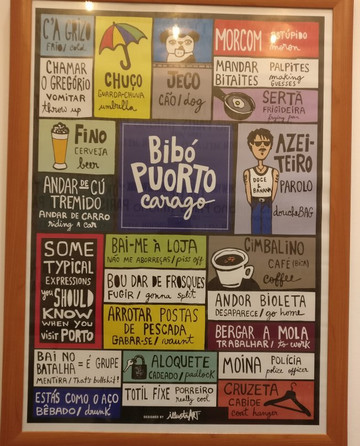 C'A GRIZO
FRIO / cold
CHUÇO
GUARDA-CHUVA
umbrella
JECO
CÃO / dog
MORCOM ESTÚPIDO
moron
CHAMAR
O GREGÓRIO
VOMITAR
throw up
MANDAR
BITAITES
PALPITES
making
GUESSES
SERTÃ
FRIGIDEIRA
frying pan
FINO
CERVEJA
beer
Bibó
PUORTO
carago
AZEI-
TEIRO
PAROLO
doucheBAG
ANDAR DE CÚ
TREMIDO
ANDAR DE CARRO
riding a car
SOME
TYPICAL
EXPRESSIONS
you SHOULD
KNOW
WHEN YOU
VISIT PORTO
BAI-ME À LOJA
NÃO ME ABORREÇAS / piss off
BOU DAR DE FROSQUES
FUGIR / gonna split
ARROTAR POSTAS
DE PESCADA
GABAR-SE / vaunt
CIMBALINO
CAFÉ
coffee
ANDOR BIOLETA
DESAPARECE / go home
BERGAR A MOLA
TRABALHAR / to work
BAI NO
BATALHA = É GRUPE
MENTIRA / That's bullshit!
ALOQUETE
CADEADO / padlock
MOINA POLÍCIA
police officer
ESTÁS COMO O AÇO
BÊBADO / drunk
TOTIL FIXE PORREIRO
really cool
CRUZETA
CABIDE
coat hanger
DESIGNED BY